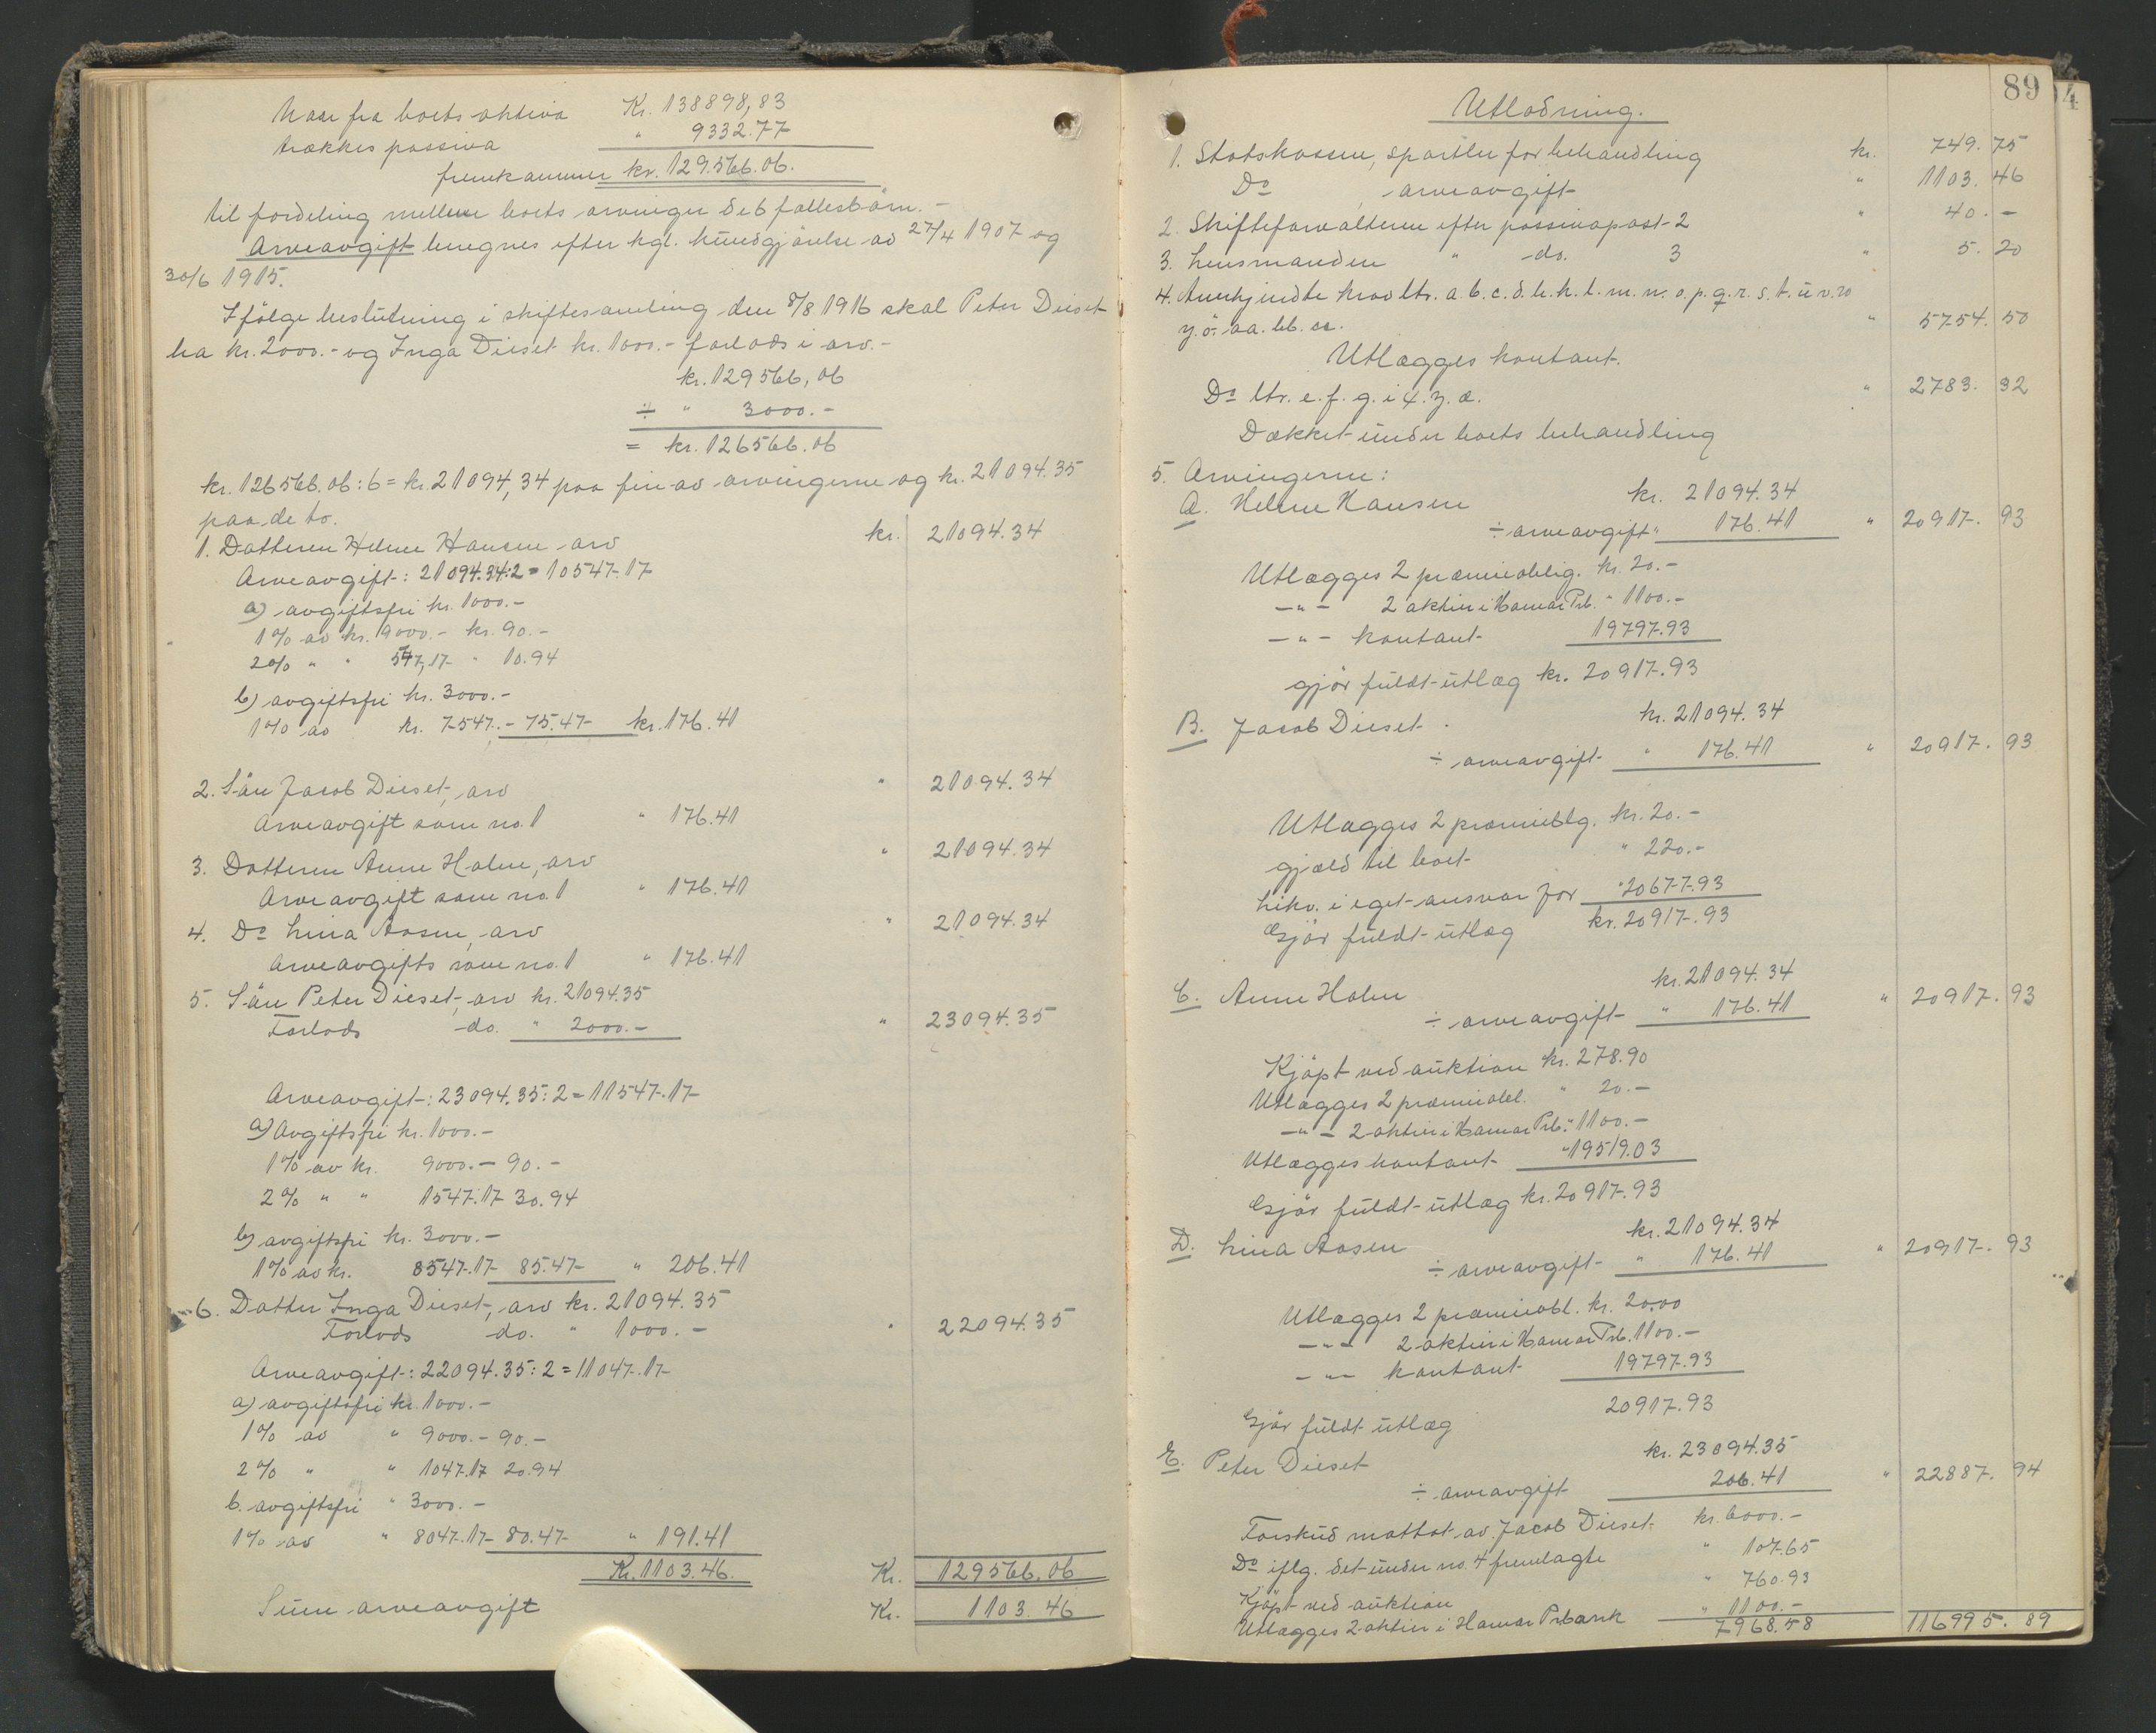 Naar fra boets aktiva Kr. 138898,83
trækkes passiva " 9332.77
fremkommer kr. 129.566.06.
til fordeling mellem boets arvinger de 6 fællesbörn. –
Arveavgift beregnes efter kgl. kundgjörelse av 27/4 1907 og
30/6 1915.
Ifölge beslutning i skiftesamling den 8/8 1916 skal Peter Dieset
ha kr. 2000.- og Inga Dieset kr. 1000.- forlods i arv.-
kr. 129566,06
÷ " 3000.-
= kr. 126566.06
kr. 126566.06 : 6 = kr. 21094,34 paa fire av arvingerne og kr. 21094.35
paa de to.
1. Datteren Helene Hansen arv kr. 21094.34
Arveavgift: 21094.34:2 = 10547.17
a) avgiftsfri kr. 1000.-
1% av kr. 9000.- kr. 90.-
2% " " 547,17 " 10.94
b) avgiftsfri kr. 3000.-
1% av kr. 7547.- 75.47 kr. 176.41
2. Sön Jacob Dieset, arv " 21094.34
Arveavgift som no. 1 " 176.41
3. Datteren Anne Holm, arv " 21094.34
Arveavgift som no. 1 " 176.41
4. Do Lina Aasen, arv " 21094.34
Arveavgifts som no. 1 " 176.41
5. Sön Peter Dieset, arv kr. 21094.35
Forlods do. " 2000.- " 23094.35
Arveavgift: 23094.35:2 = 11547.17
a) Avgiftsfri kr. 1000.-
1% av kr. 9000.- 90.-
2% " " 1547.17 30.94
b) avgiftsfri kr. 3000.-
1% av kr. 8547.17 85.47 " 206.41
6. Datter Inga Dieset, arv kr. 21094.35
Forlods do. " 1000.- " 22094.35
Arveavgift: 22094.35:2 = 11047.17
a) avgiftsfri kr. 1000.-
1% av " 9000.- 90.-
2% " " 1047.17 20.94
b. avgiftsfri " 3000.-
1% av " 8047.17 80.47 " 191.41
Kr. 1103.46. Kr. 129566.06
Sum arveavgift Kr. 1103.46
89
4
Utlodning.
1. Statskassen, sportler for behandling kr. 749.75
Do , arveavgift " 1103.46
2. Skifteforvalteren efter passivapost 2 " 40.-
3. Lensmanden " do. 3 " 5.20
4. Anerkjendte krav ltr. a. b. c. d. h. k. l. m. n. o. p. q. r. s. t. u. v. w
y. ö. aa. bb. cc. " 5754.50
Utlægges kontant.
Do ltr. e. f. g. i 4. z. æ. " 2783.32
Dækket under boets behandling
5. Arvingerne:
A. Helene Hansen kr. 21094.34
÷ arveavgift " 176.41 " 20917.93
Utlægges 2 præmieoblig. kr. 20.-
-"- 2 aktier i Hamar Prb. " 1100.-
-"- kontant 19797.93
gjör fuldt utlæg kr. 20917.93
B. Jacob Dieset. kr. 21094.34
÷ arveavgift " 176.41 " 20917.93
Utlægges 2 præmieblg. kr. 20.-
gjæld til boet " 220.-
Likv. i eget ansvar for " 20677.93
Gjör fuldt utlæg kr. 20917.93
C. Anne Holm kr. 21094.34
÷ arveavgift " 176.41 " 20917.93
Kjöpt ved auktion kr. 278.90
Utlægges 2 præmieobl. " 20.-
-"- 2 aktier i Hamar Prb. " 1100.-
Utlægges kontant " 19519.03
Gjör fuldt utlæg kr. 20917.93
D. Lina Aasen kr. 21094.34
÷ arveavgift " 176.41 " 20917.93
Utlægges 2 præmieobl. kr. 20.00
-"- 2 aktier i Hamar Prb. 1100.-
-"- kontant 19797.93
Gjör fuldt utlæg 20917.93
E. Peter Dieset kr. 23094.35
÷ arveavgift 206.41 " 22887.94
Forskud mottat av Jacob Dieset kr. 6000.-
Do iflg. det under no. 4 fremlagte " 107.65
Kjöpt ved auktion " 760.93
Utlægges 2 aktier i Hamar Prbank " 1100.-
7968.58 116995.89